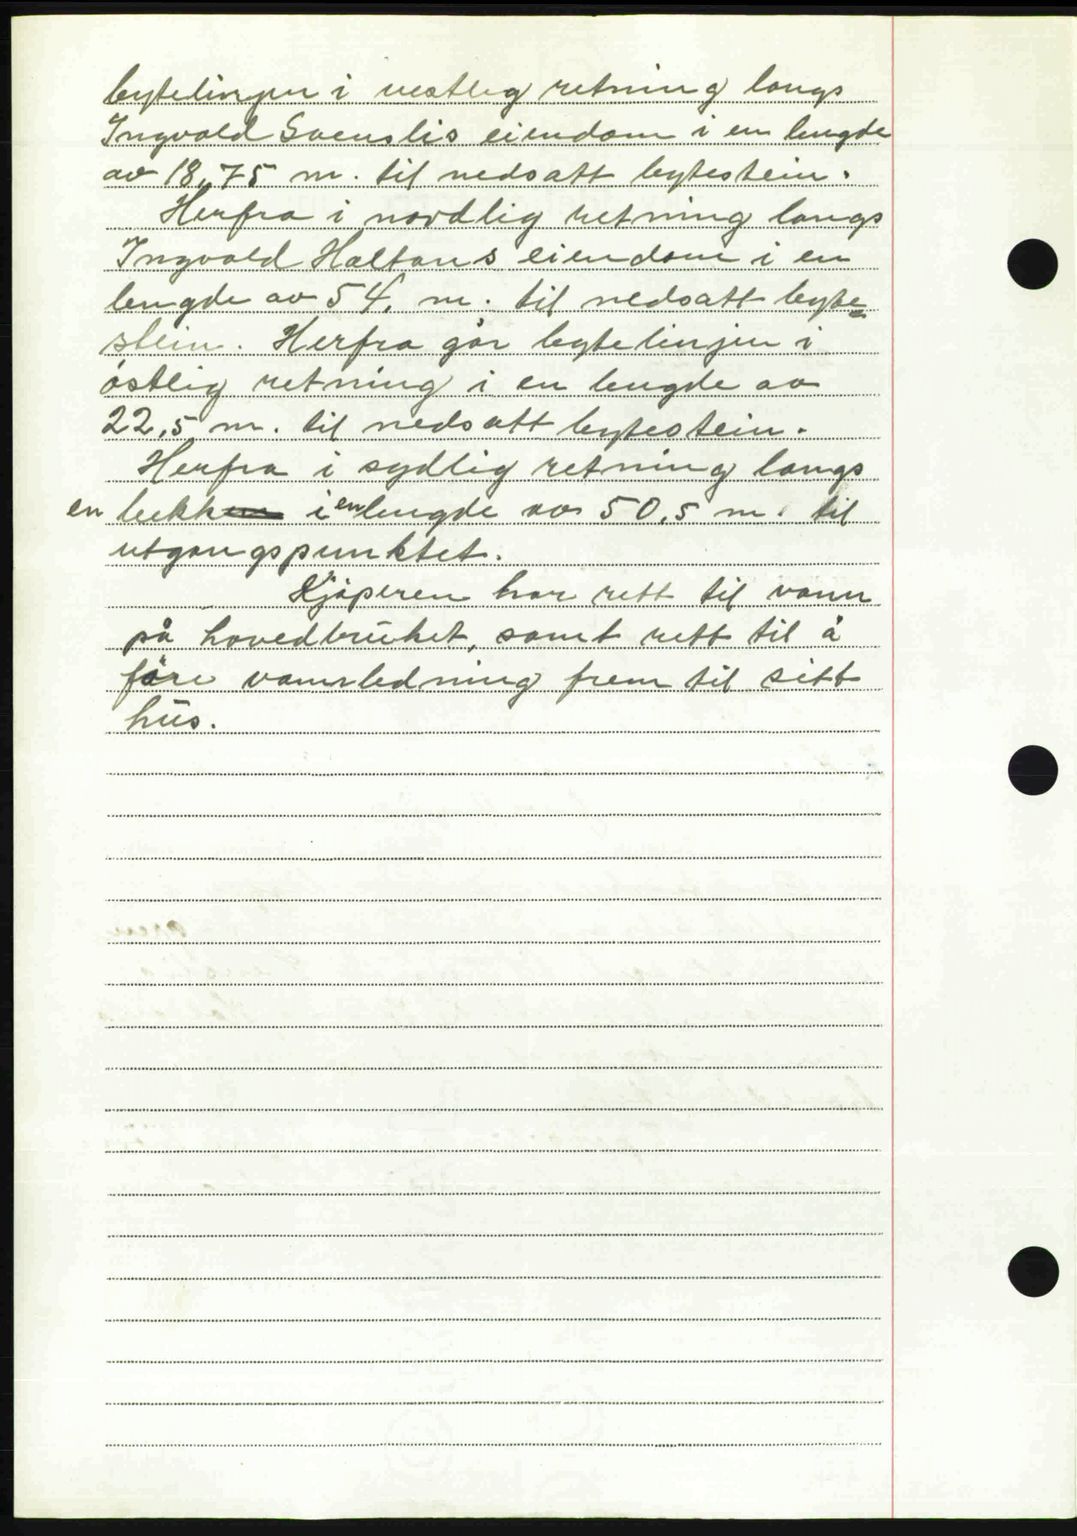 bytelinjen i vestleg retning langs
Ingvald Svenslis eiendom i en lengde
av 18,75 m. til nedsatt bytestein.
Herfra i nordlig retning langs
Ingvald Haltans eiendom i en
lengde av 54, m. til nedsatt byte=
stein. Herfra går bytelinjen i
östlig retning i en lengde av
22,5 m. til nedsatt bytestein.
Herfra i sydlig retning langs
en bekken i en lengde av 50,5 m. til
utgangspunktet.
Kjöperen har rett til vann
på hovedbruket, samt rett til å
före vannledning frem til sitt
hus.